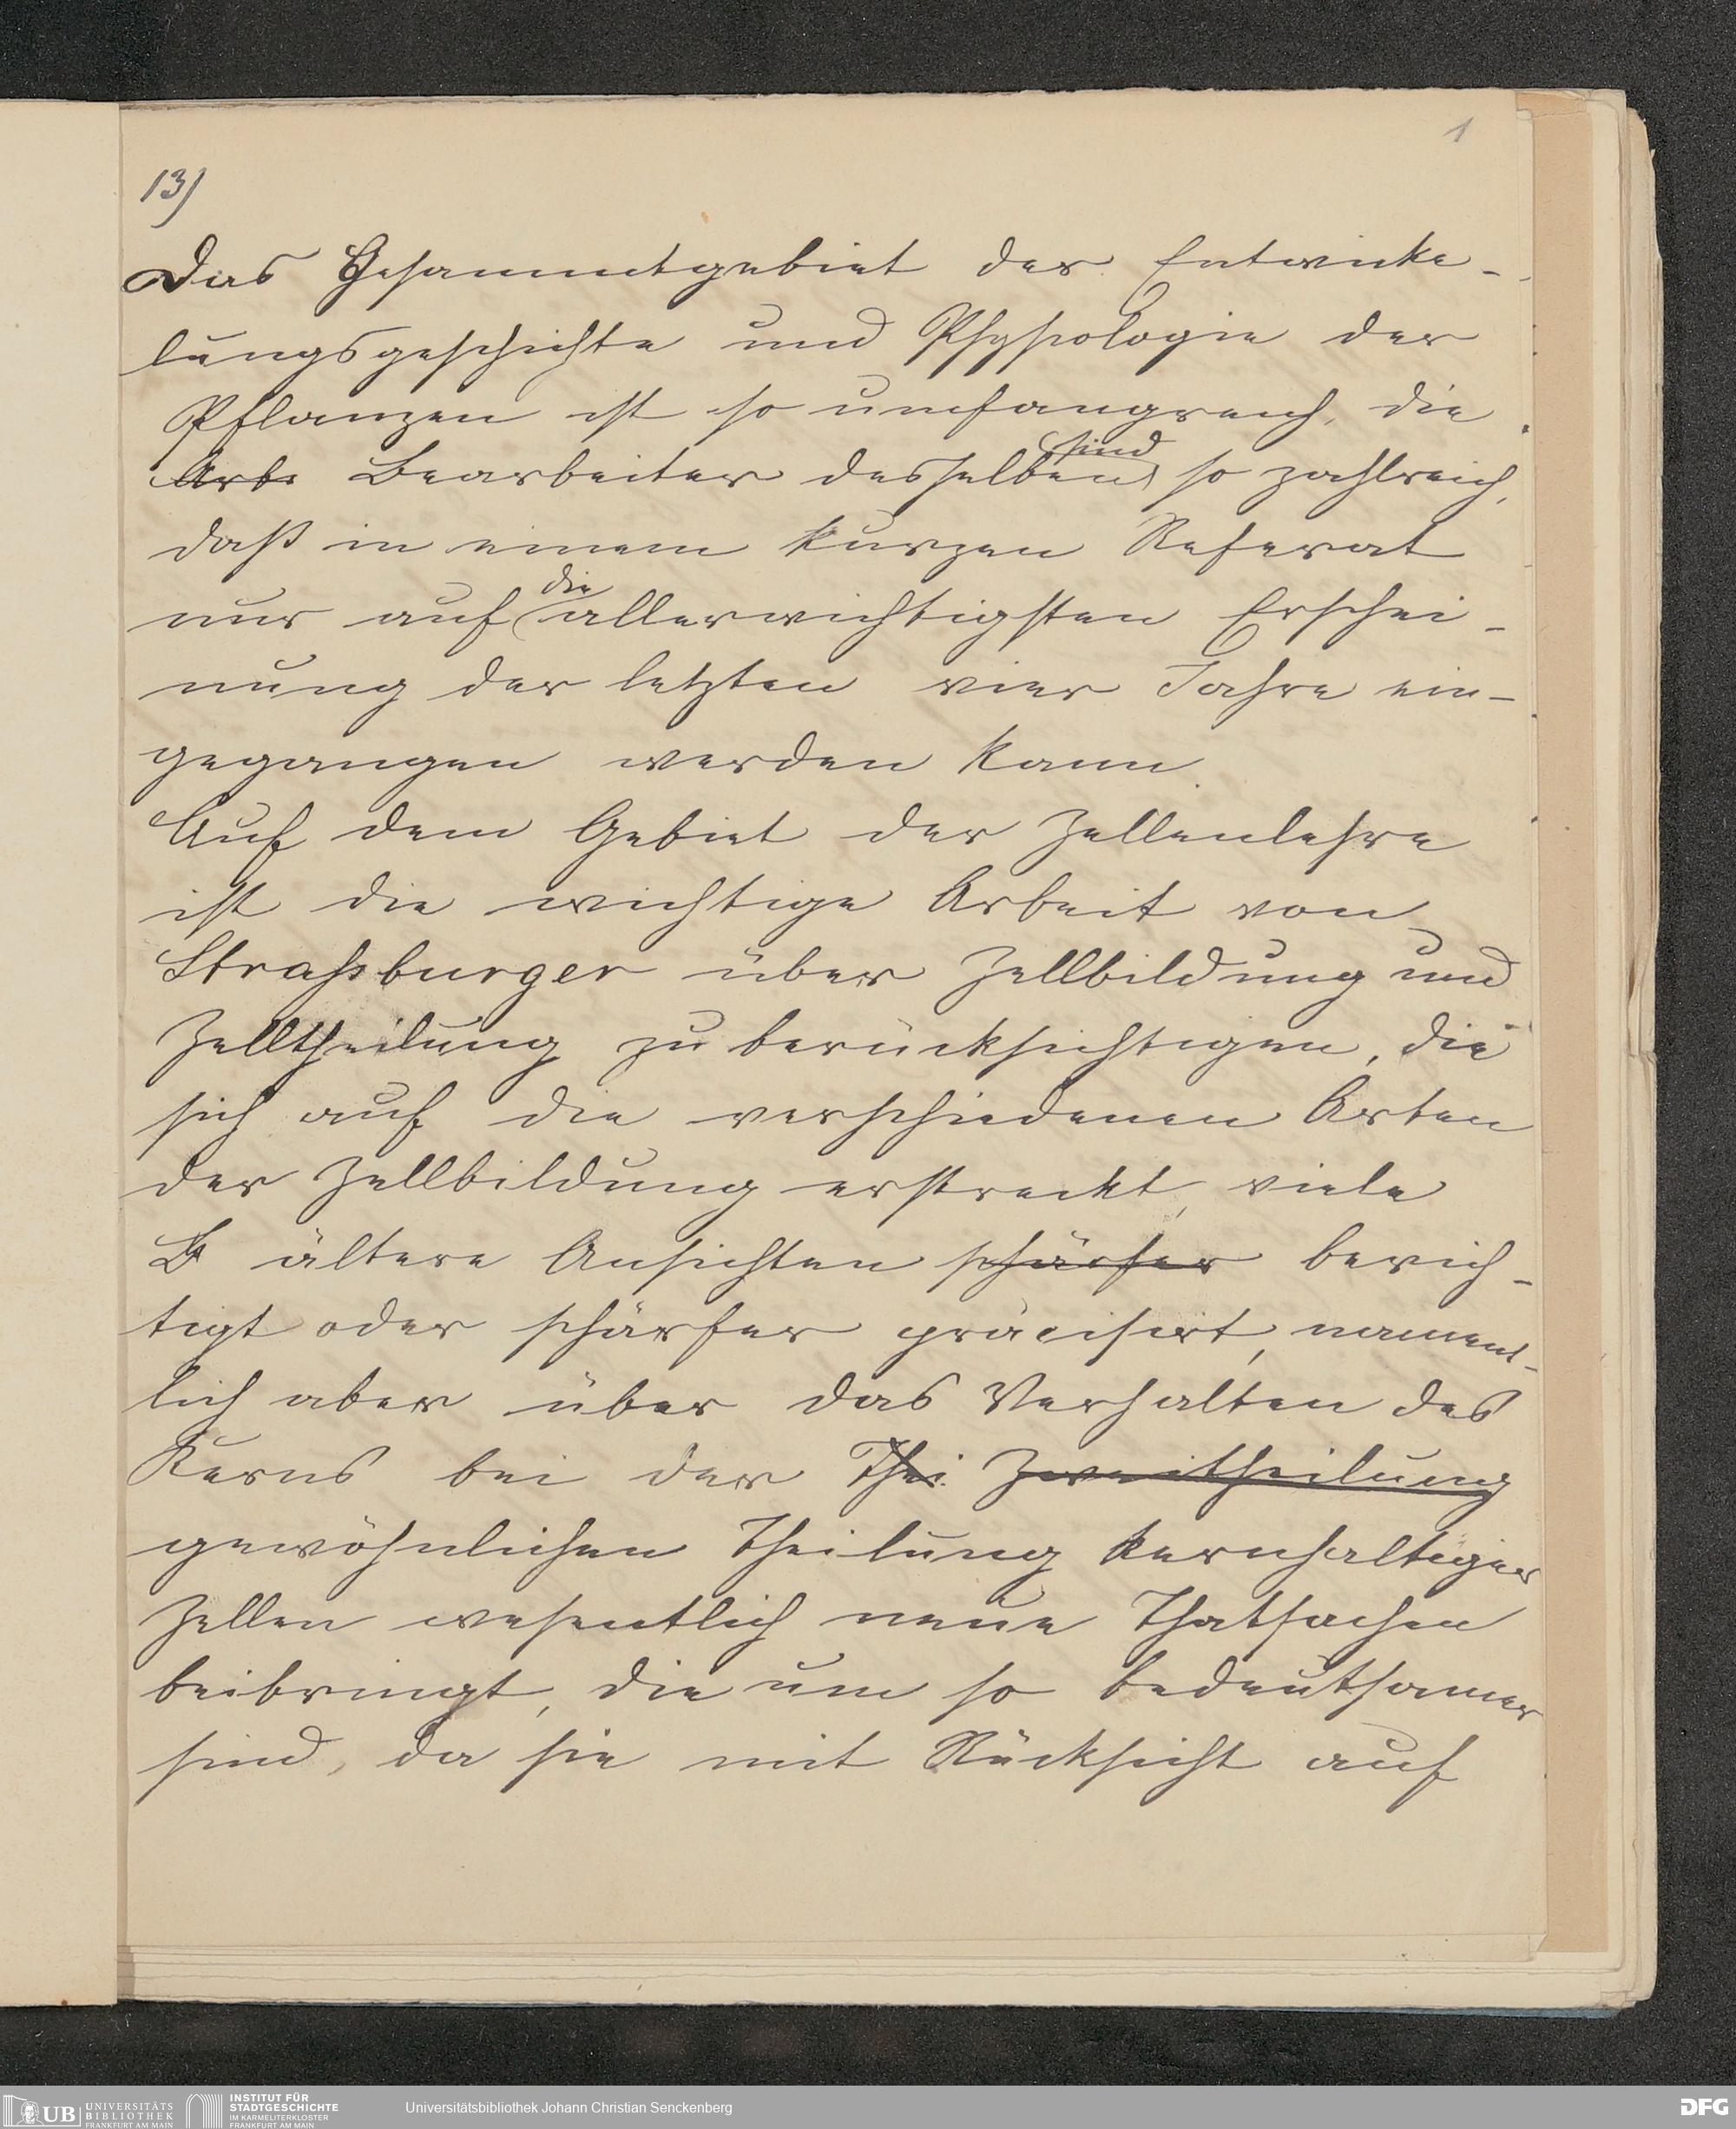 1
13)
Das Gesammtgebiet der Entwicke-
lungsgeschichte und Physiologie der
Pflanzen ist so umfangreich, die
Arbe Bearbeiter desselben sind so zahlreich,
daß in einem kurzen Referat
nur auf die allerwichtigsten Erschei-
nung der letzten vier Jahre ein-
gegangen werden kann
Auf dem Gebiet der Zellenlehre
ist die wichtige Arbeit von
Straßburger über Zellbildung und
Zelltheilung zu berücksichtigen, die
sich auf die verschiedenen Arten
der Zellbildung erstreckt, viele
B ältere Ansichten schärfer berich-
tigt oder schärfer präcisirt, nament-
lich aber über das Verhalten des
Kerns bei der Thei Zweitheilung
gewöhnlichen Theilung kernhaltiger
Zellen wesentlich neue Thatsachen
beibringt, die um so bedeutsamer
sind, da sie mit Rücksicht auf
UB UNIVERSITÄTS BIBLIOTHEK FRANKFURT AM MAIN
INSTITUT FÜR STADTGESCHICHTE IM KARMELITERKLOSTER FRANKFURT AM MAIN
Universitätsbibliothek Johann Christian Senckenberg
DFG